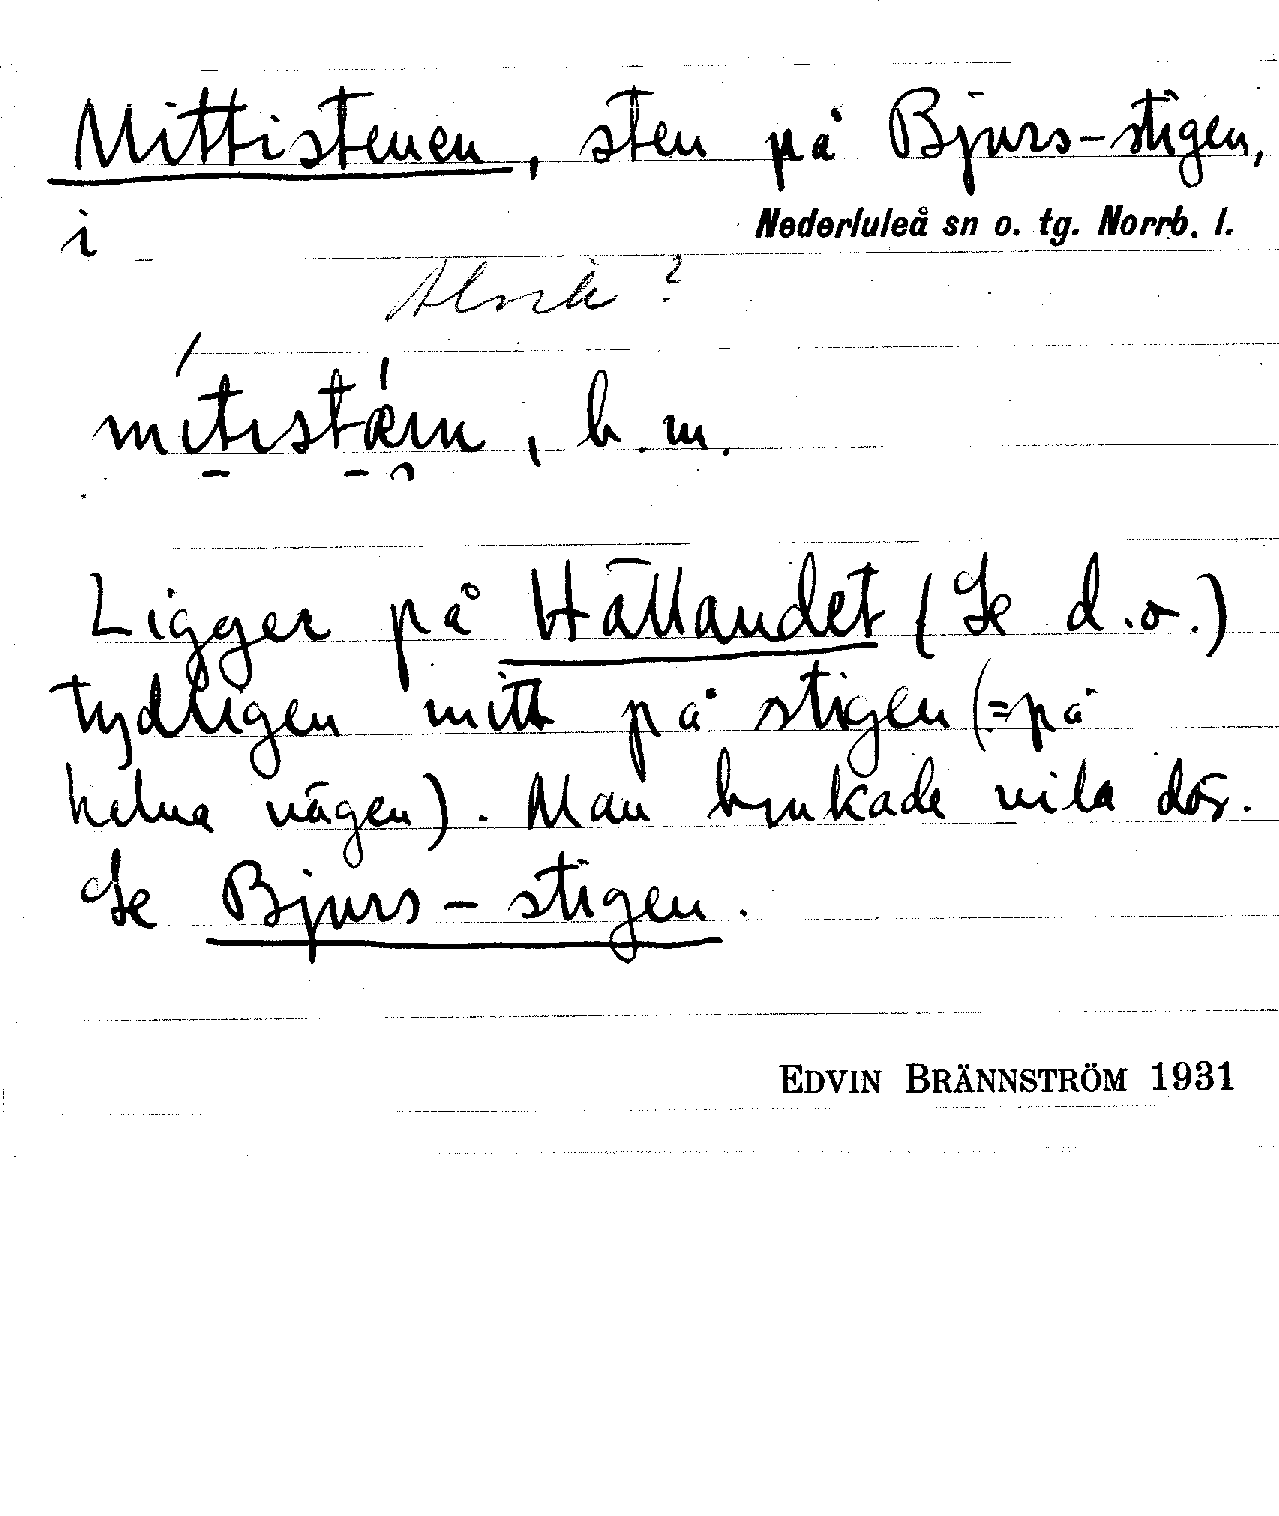 Mittistenen, sten på Bjurs-stigen,
i Nederluleå sn o. tg. Norrb. l.
Alvik ?
mitistæin, b. m.
Ligger på Hällandet (Se d.o.)
tydligen mitt på stigen (= på
halva vägen). Man brukade vila där.
Se Bjurs-stigen.
EDVIN BRÄNNSTRÖM 1931